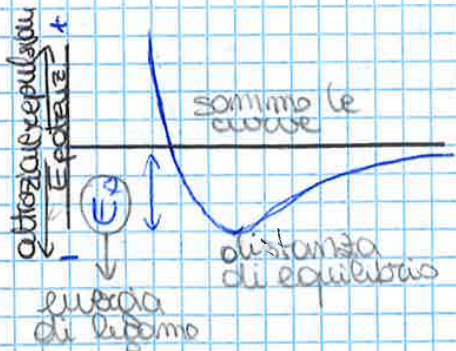 attrazione repulsione
E potenz.
+
-
sommo le
curve
E₀
distanza
di equilibrio
energia
di legame